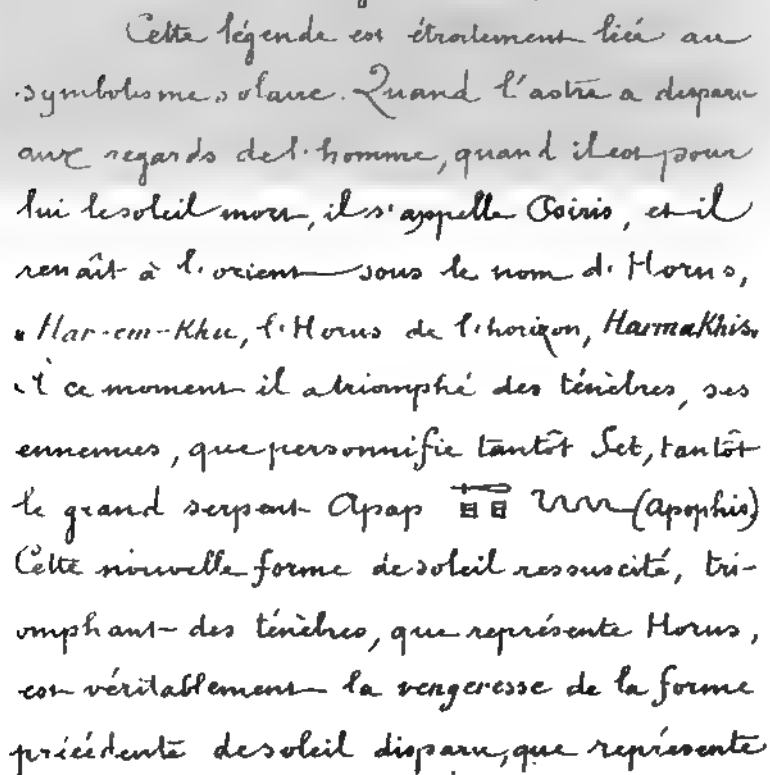 Cette légende est étroitement liée au
symbolisme solaire. Quand l'astre a disparu
aux regards de l'homme, quand il est pour
lui le soleil mort, il s'appelle Osiris, et il
renaît à l'orient sous le nom d'Horus,
Har-em-Khu, l'Horus de l'horizon, Harmakhis.
A ce moment il a triomphé des ténèbres, ses
ennemies, que personnifie tantôt Set, tantôt
le grand serpent Apap (Apophis)
Cette nouvelle forme de soleil ressuscité, tri-
omphant des ténèbres, que représente Horus,
est véritablement la vengeresse de la forme
précédente de soleil disparu, que représente